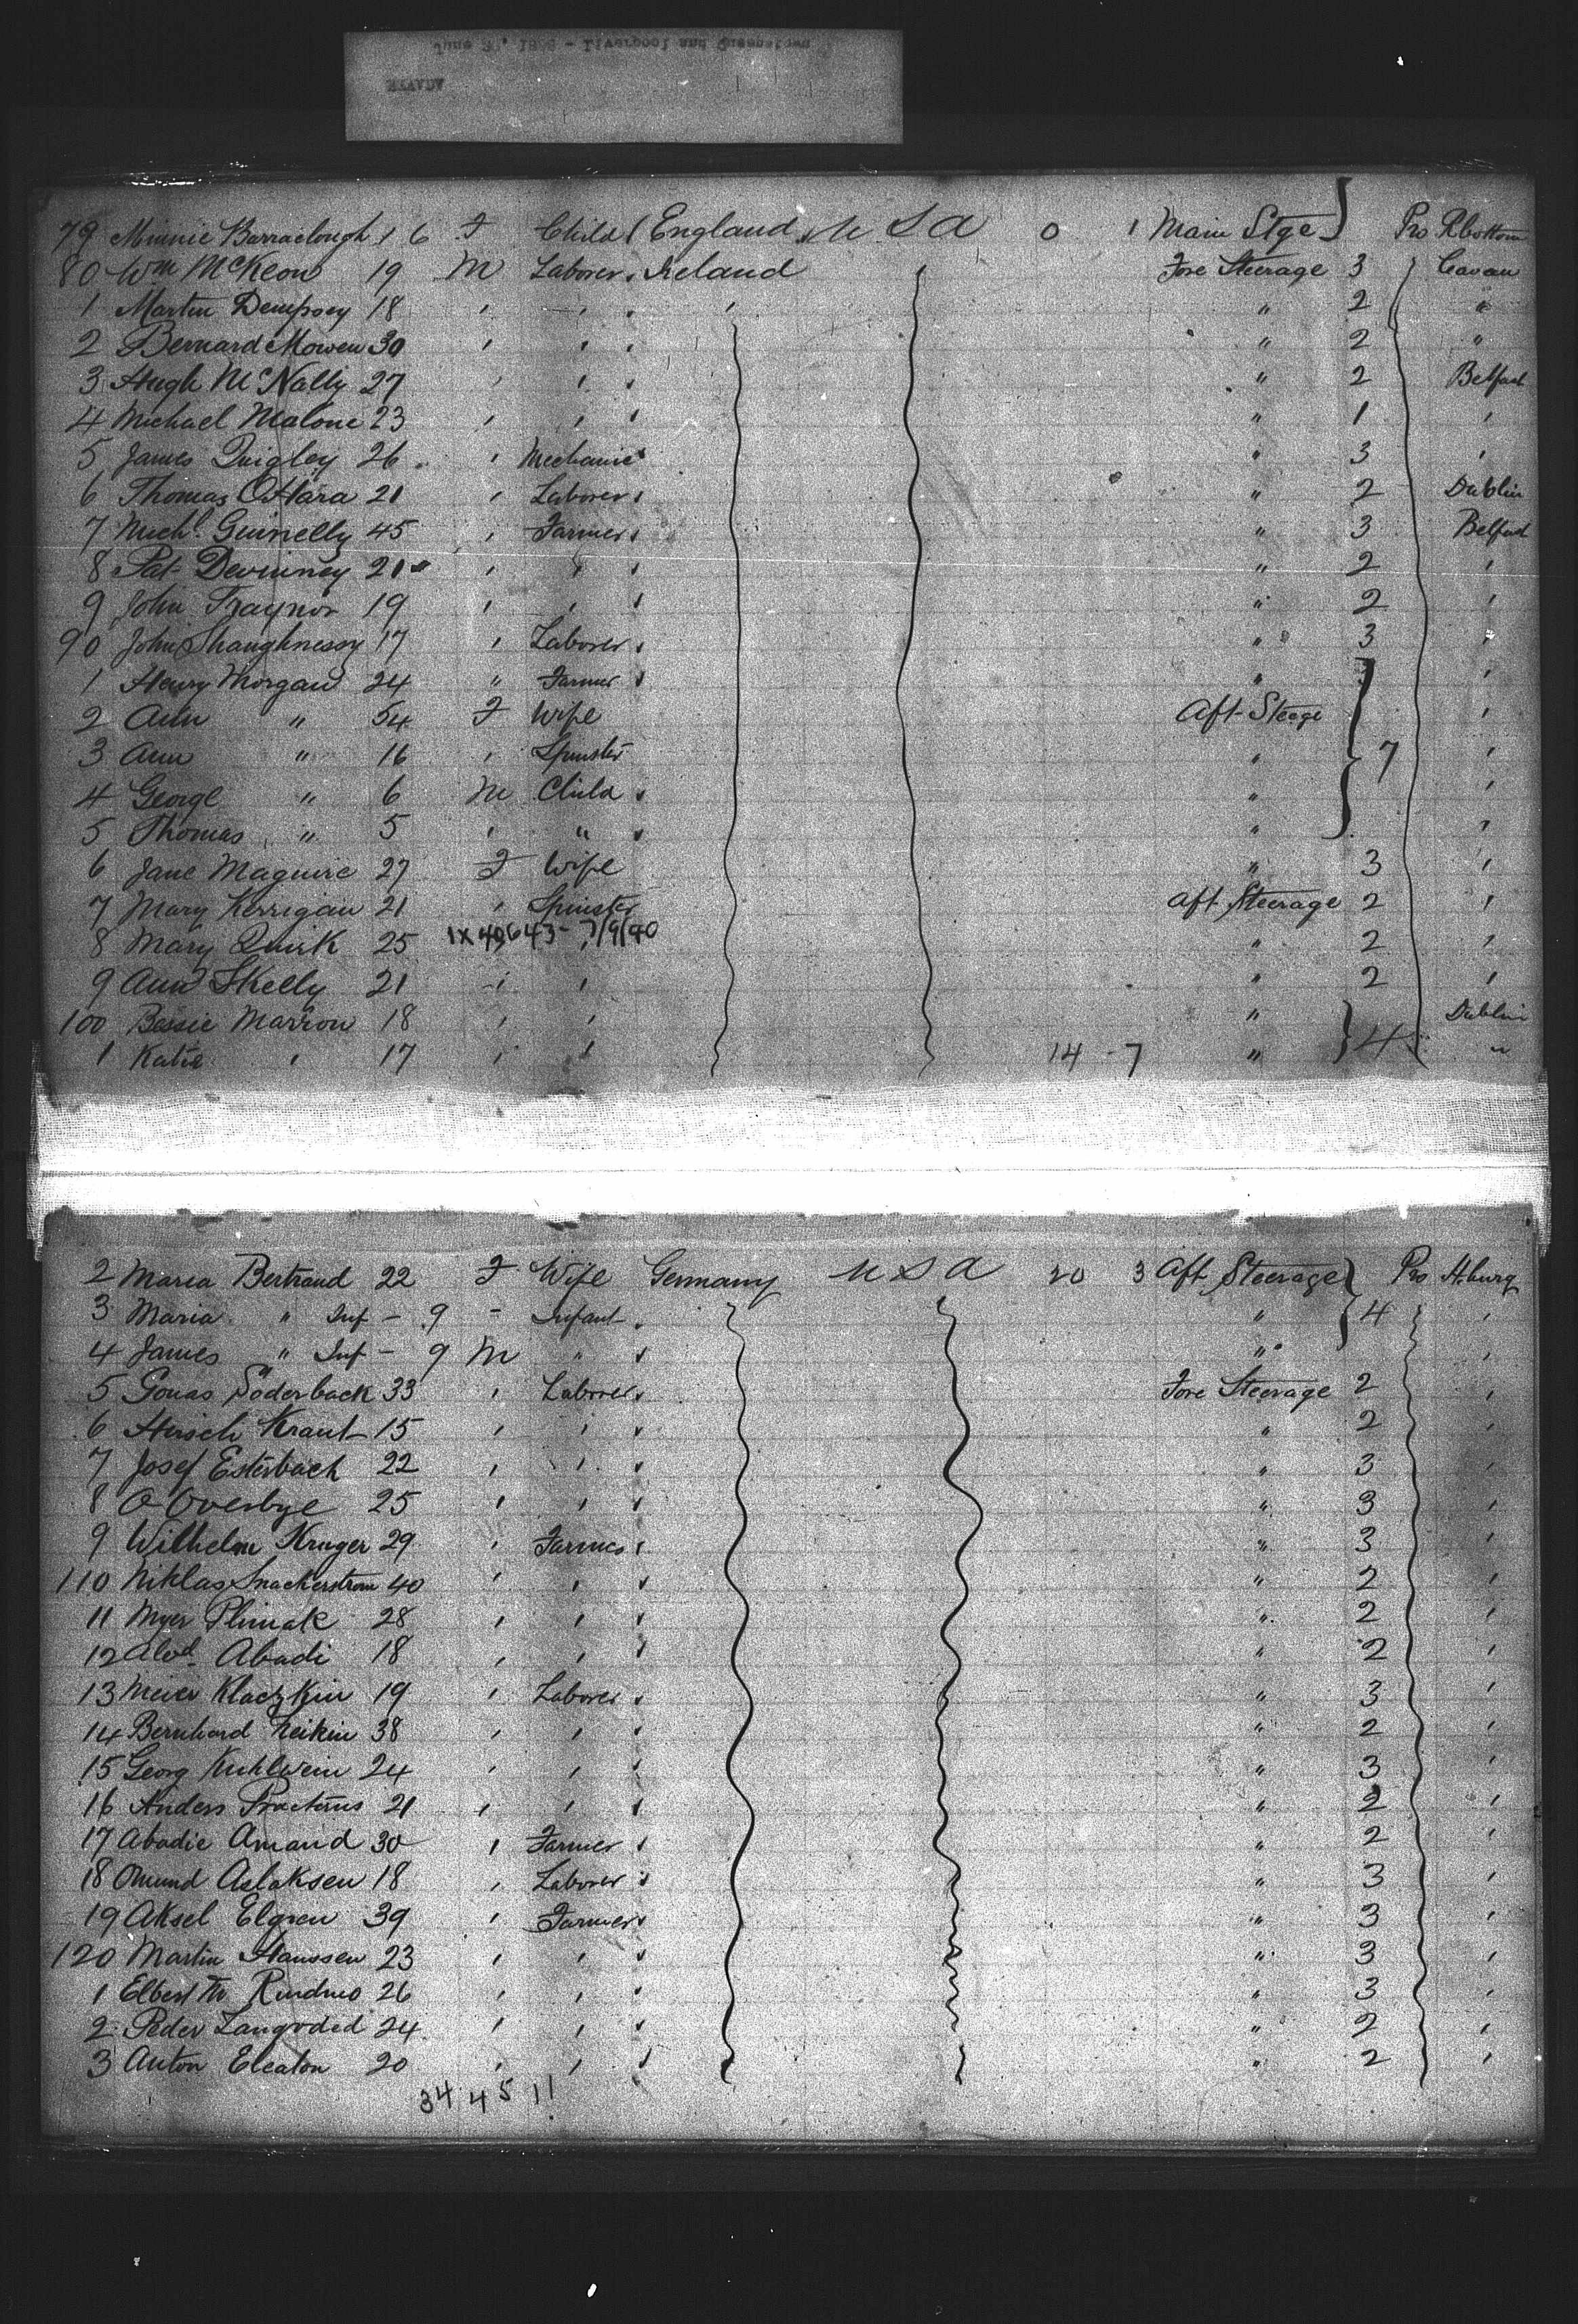 June 30, 18 - Liverpool and Queenstown
79 Minnie Barraclough 1 6 F Child England U S A 0 1 Main Stge Pro Rbottom
80 Wm McKeon 19 M Laborer Ireland Fore Steerage 3 Cavan
1 Martin Dempsey 18 ' ' ' " 2 "
2 Bernard Mowen 30 ' ' " 2 "
3 Hugh McNally 27 ' ' " 2 Belfast
4 Michael Malone 23 ' ' " 1 '
5 James Quigley 26 ' Mechanic " 3 '
6 Thomas O'Hara 21 ' Laborer " 2 Dublin
7 Michl. Guinelly 45 ' Farmer " 3 Belfast
8 Pat Devinney 21 ' ' " 2 '
9 John Traynor 19 ' ' " 2 '
90 John Shaughnessy 17 ' Laborer " 3 '
1 Henry Morgan 24 " Farmer " '
2 Ann " 54 F Wife Aft Steege '
3 Ann " 16 ' Spinster " 7 '
4 George " 6 M Child " '
5 Thomas " 5 ' " " '
6 Jane Maguire 27 F Wife " 3 '
7 Mary Kerrigan 21 ' Spinster Aft Steerage 2 '
8 Mary Quirk 25 1X 49643 - 7/9/40 " 2 '
9 Ann Skelly 21 ' ' " 2 '
100 Bessie Marron 18 ' ' " Dublin
1 Katie ' 17 ' ' 14 - 7 " 4 "
2 Maria Bertrand 22 F Wife Germany U S A 20 3 Aft Steerage Pro H.burg
3 Maria " Inf - 9 - Infant " 4 '
4 James " Inf - 9 M " " '
5 Jonas Soderback 33 ' Laborer Fore Steerage 2 '
6 Hirsch Kraut 15 ' ' " 2 '
7 Josef Esterbach 22 ' ' " 3 '
8 O Overbye 25 ' ' " 3 '
9 Wilhelm Kruger 29 ' Farmer " 3 '
110 Niklas Snackerstrom 40 ' ' " 2 '
11 Myer Plimak 28 ' ' " 2 '
12 Abadi 18 ' ' " 2 '
13 Meier Klaczkin 19 ' Laborer " 3 '
14 Bernhard Neikin 38 ' ' " 2 '
15 Georg Kuhlwein 24 ' ' " 3 '
16 Anders 21 ' ' " 2 '
17 Abadie Amand 30 ' Farmer " 2 '
18 Omund Aslaksen 18 ' Laborer " 3 '
19 Aksel Elgren 39 ' Farmer " 3 '
120 Martin Hanssen 23 ' ' " 3 '
1 Elbert M Rindmo 26 ' ' " 3 '
2 Peder 24 ' ' " 2 '
3 Anton 20 ' ' " 2 '
34 45 11